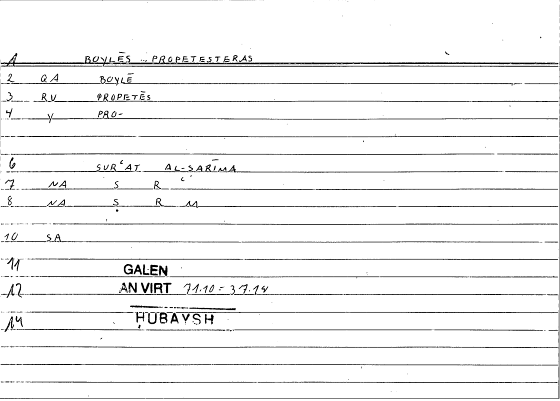 1 BOYLĒS … PROPETESTERAS
2 QA BOYLĒ
3 RU PROPETĒS
4 Y PRO-
6 SURʿAT AL-ṢARĪMA
7 NA S R ʿ
8 NA Ṣ R M
10 SA
11 GALEN
12 AN VIRT 71.10 = 37.14
14 ḤUBAYSH